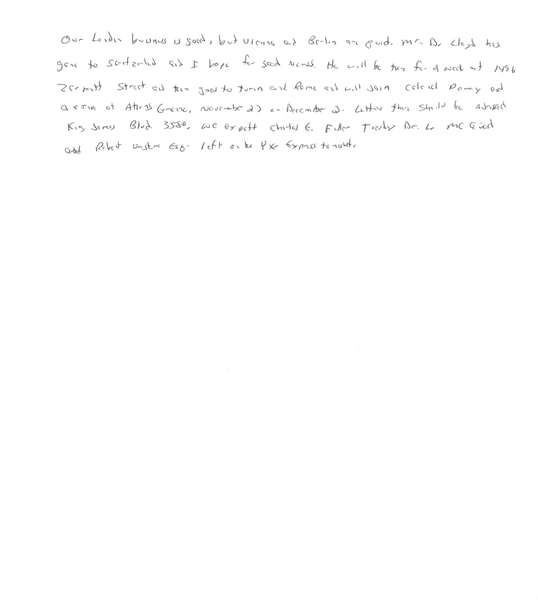 Our London business is good, but Vienna and Berlin are quiet. Mr. D. Lloyd has
gone to Switzerland and I hope for good news. He will be there for a week at 1496
Zermott Street and then goes to Turin and Rome and will join Colonel Parry and
arrive at Athens Greece, November 27 or December 2. Letters there should be addressed
King James Blvd. 3580. We expect Charles E. Fuller Tuesday. Dr. L. McQuaid
and Robert Unger Esq. left on the P Xpr Express tonight.